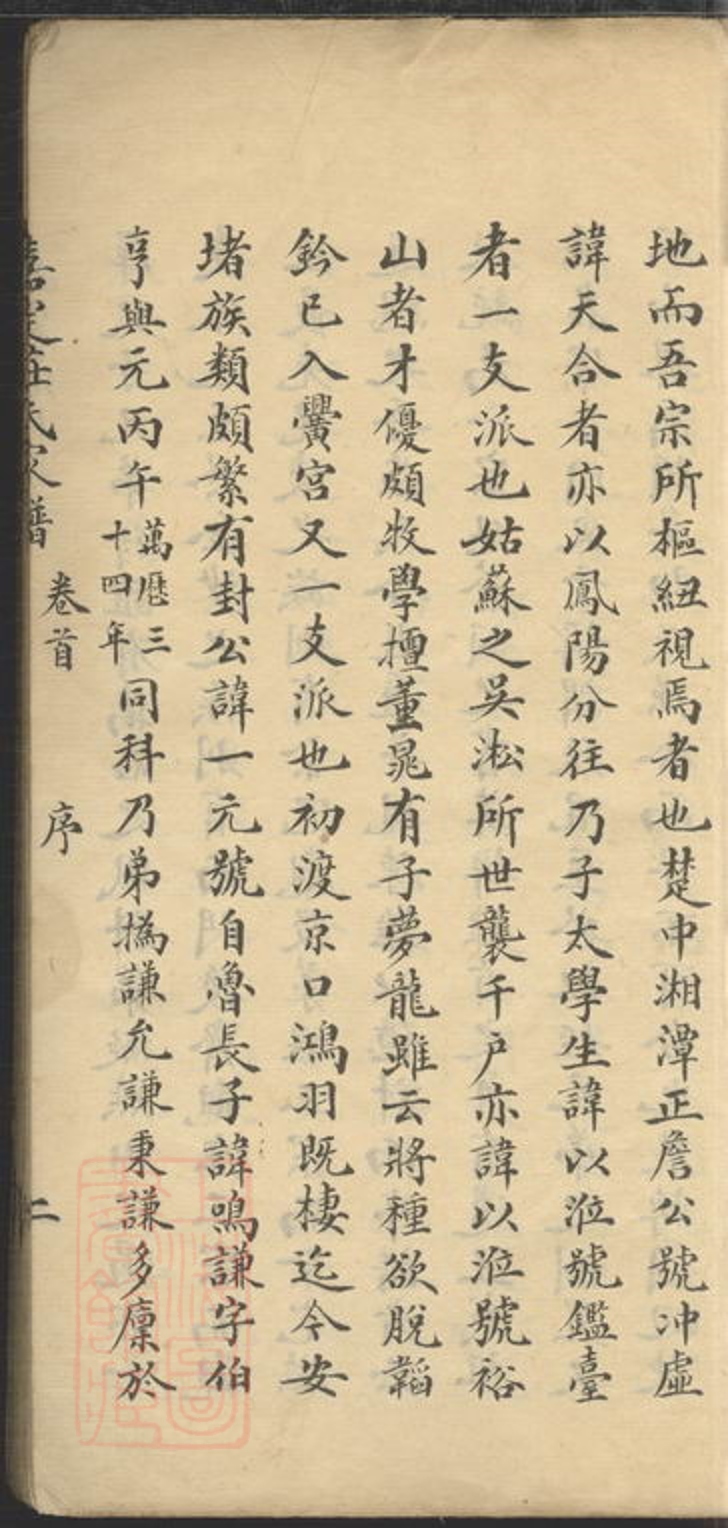 地而吾宗所樞紐視焉者也楚中湘潭正詹公號冲虛
諱天合者亦以鳳陽分往乃子太學生諱以涖號鑑臺
者一支派也姑蘇之吳淞所世襲千户亦諱以涖號裕
山者才優頗牧學擅董晁有子夢龍雖云將種欲脫韜
鈐已入黌宮又一支派也初渡京口鴻羽既棲迄今安
堵族類頗繁有封公諱一元號自魯長子諱鳴謙字伯
亨與元丙午萬厯三十四年同科乃弟撝謙允謙秉謙多廩於
氏家譜 卷首 序 二